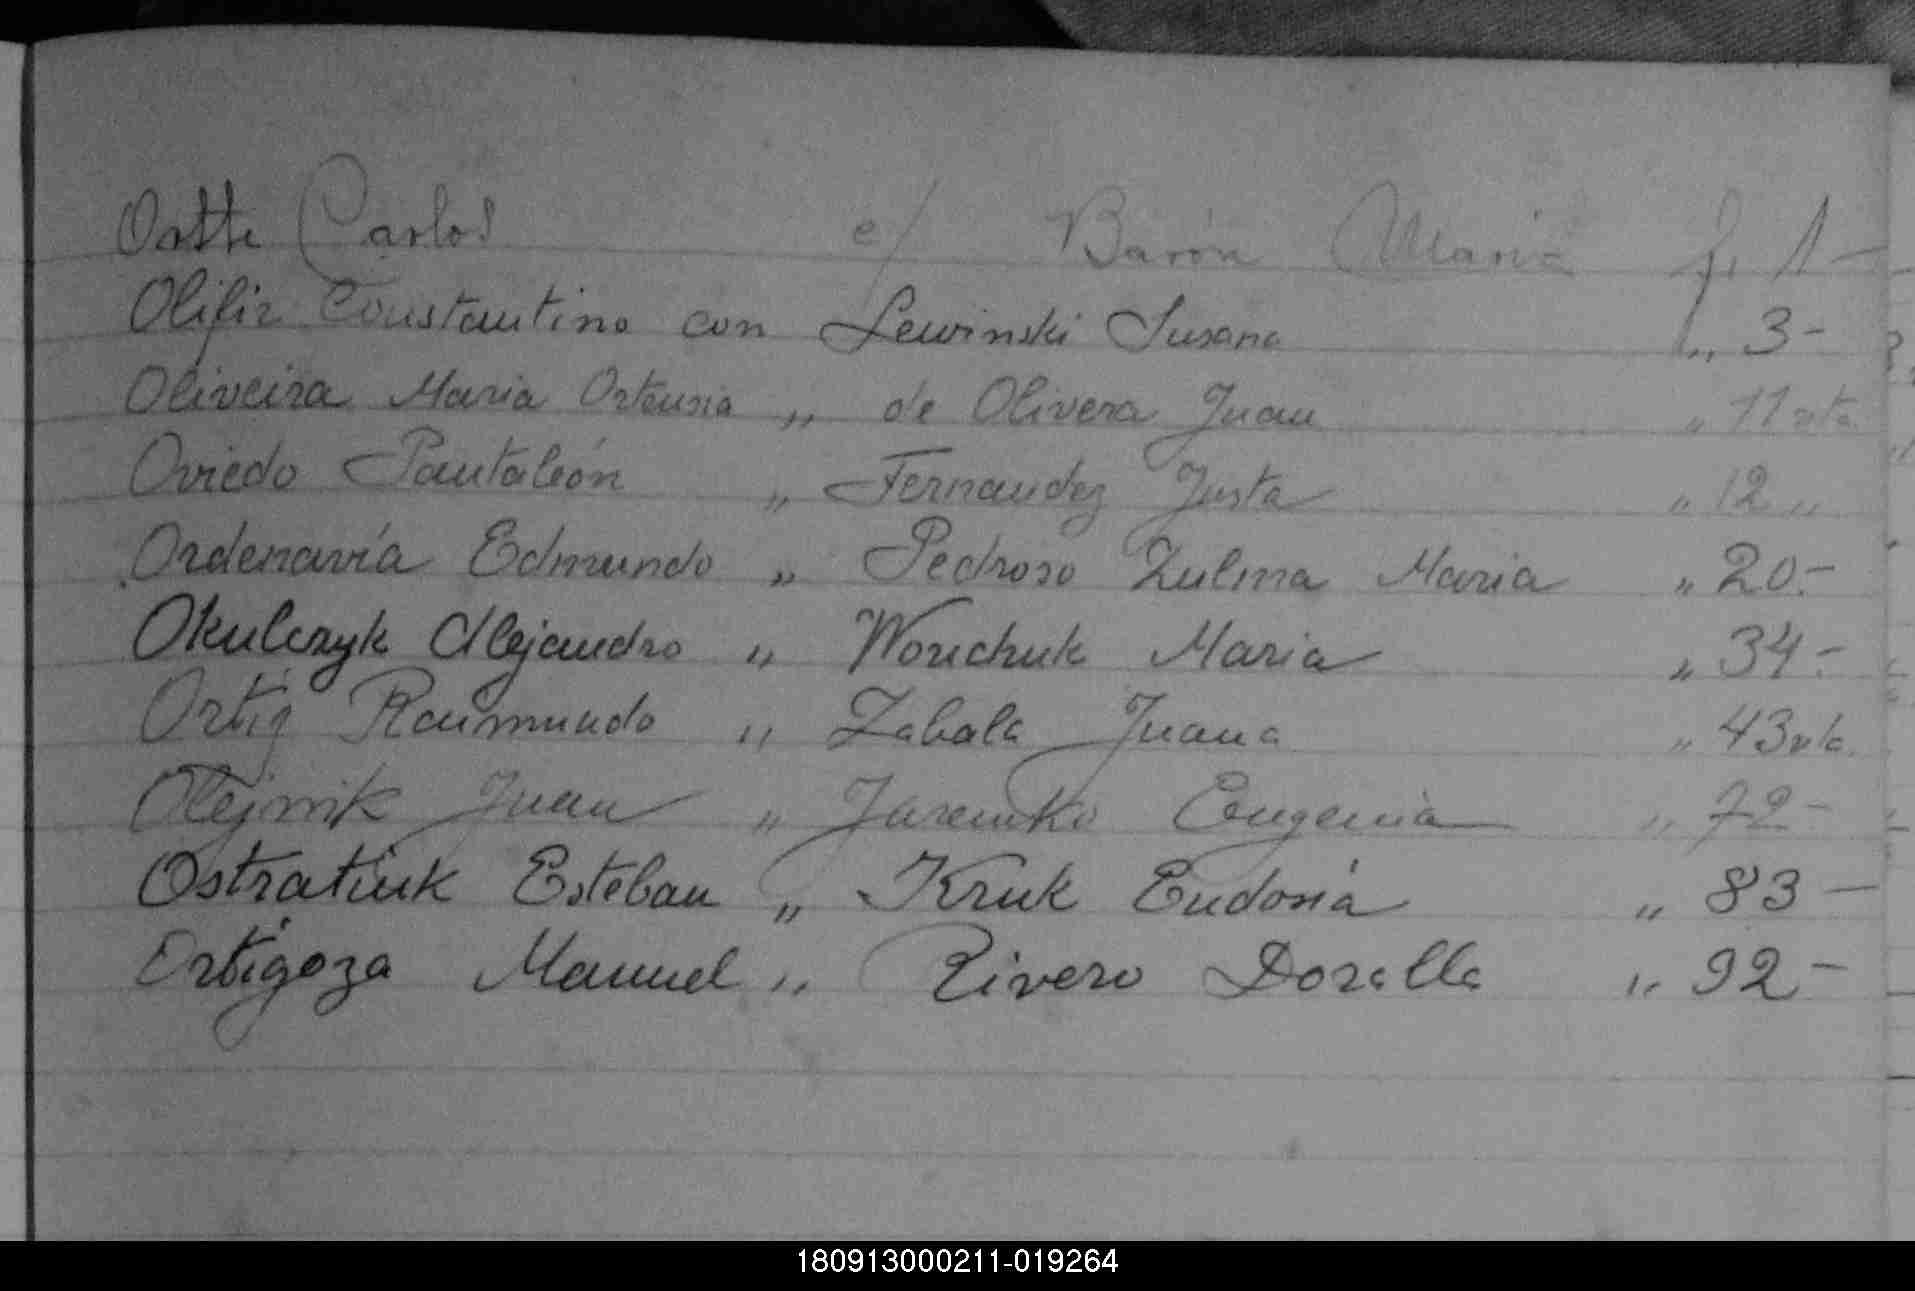 Ortte Carlos c/ Barón Maria f. 1 -
Olifir Constantino con Lewinski Susana „ 3 -
Oliveira Maria Ortensia „ de Olivera Juan „ 11 vta.
Oviedo Pantaleón „ Fernandez Justa „ 12 „
Ordenavía Edmundo „ Pedroso Zulma Maria „ 20.-
Okulczyk Alejandro „ Woruchuk Maria „ 34 -
Ortiz Raimundo „ Zabala Juana „ 43 vta.
Olejnik Juan „ Jaremko Eugenia „ 72 -
Ostratiuk Esteban „ Kruk Eudosia „ 83 -
Ortigoza Manuel „ Rivero Doralla „ 92 -
180913000211-019264